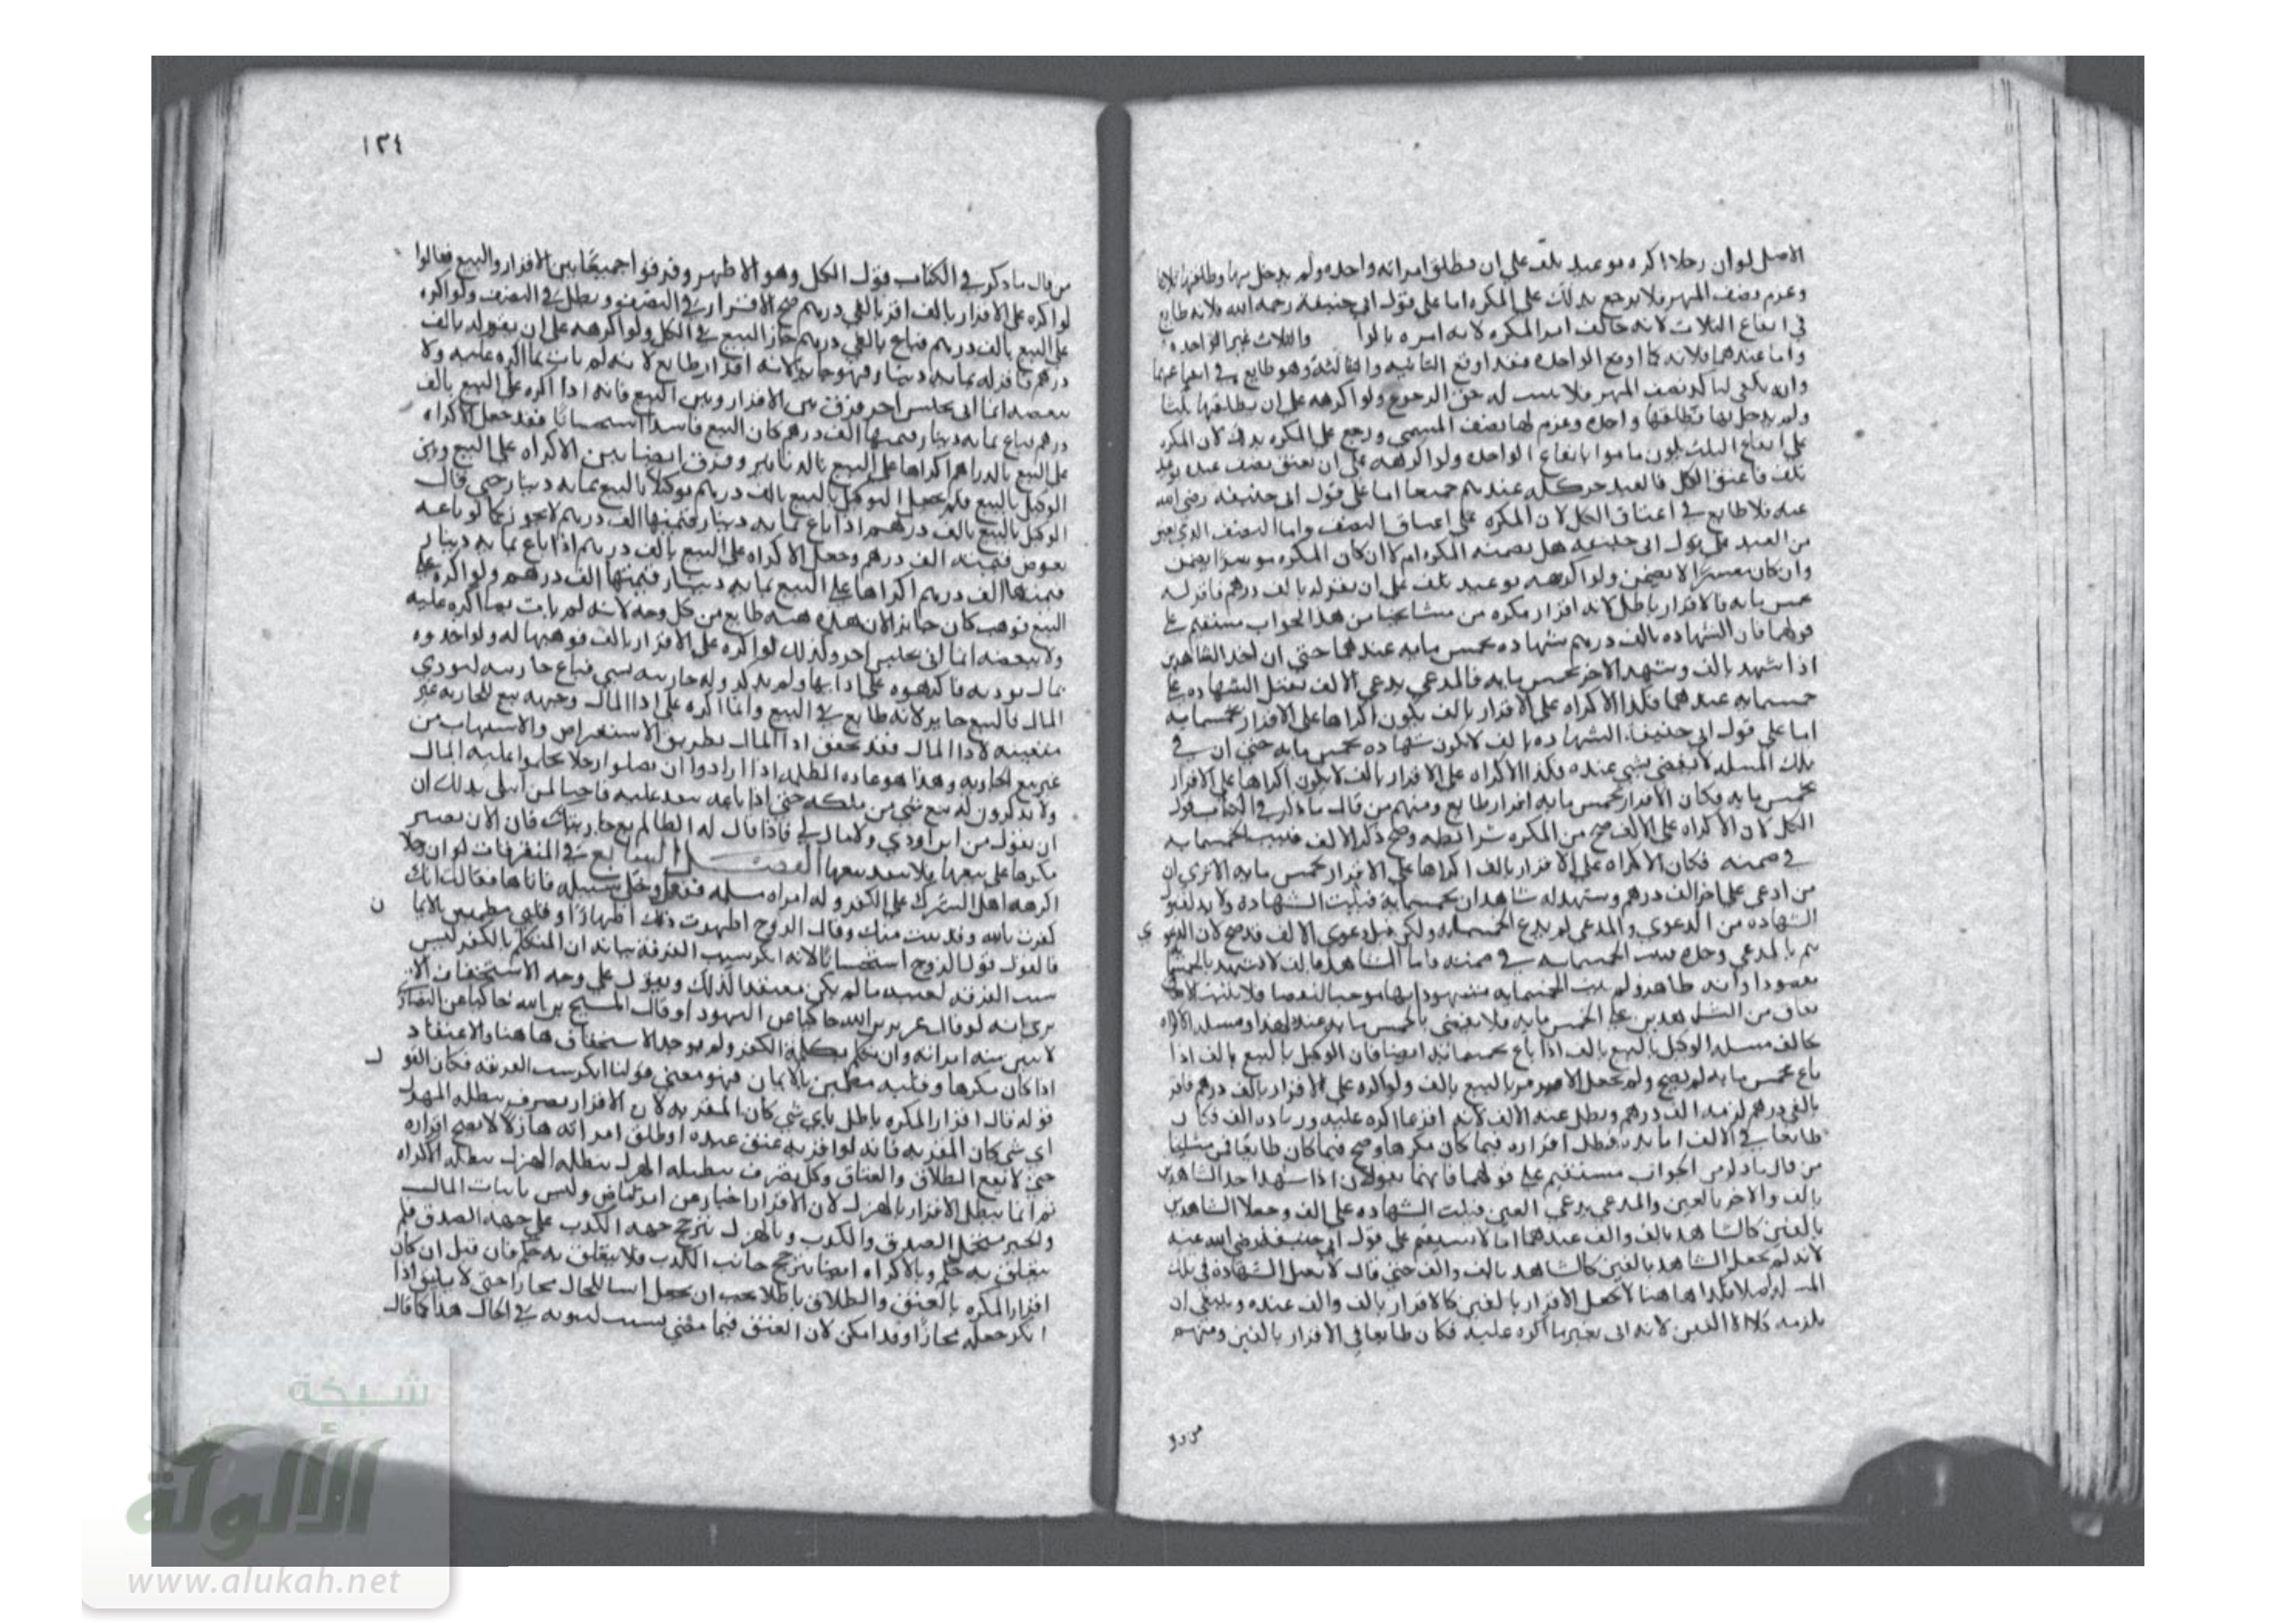 الاصل لو ان رجلا اكره بوعيد تلف على ان يطلق امراته واحده ولم يدخل بها وطلقها ثلاثا
وغرم نصف المهر فلا يرجع بذلك على المكره اما على قول ابي حنيفة رحمه الله فلانه طايع
في ايقاع الثلاث لانه خالف امر المكره لانه امره بالوا والثلاث غير الواحده
واما عندهما فلانه كما اوقع الواحده فقد اوقع الثانيه والثالثة وهو طايع في ايقاعهما
وانه يكفي لتاكد نصف المهر فلا يثبت له حق الرجوع ولو اكرهه على ان يطلقها ثلثا
ولم يدخل بها فطلقها واحده وغرم لها نصف المسمى ورجع على المكره بذلك لان المكره
على ايقاع الثلث يكون مامورا بايقاع الواحده ولو اكرهه على ان يعتق نصف عبده بوعيد
تلف فاعتق الكل فالعبد حر كله عندهم جميعا اما على قول ابي حنيفه رضي الله
عنه فلا طايع في اعتاق الكل لان المكره على اعتاق النصف واما النصف الذي
من العبد على قول ابي حنيفه هل يضمنه المكره ام لا ان كان المكره موسرا يضمن
وان كان معسرا لا يضمن ولو اكرهه بوعيد تلف على ان يقر له بالف درهم فاقر له
بخمس مايه فالاقرار باطل لانه اقرار مكره من مشايخنا من هذا الجواب مستقيم على
قولهما فان الشهاده بالف درهم شهاده بخمس مايه عندهما حتى ان احد الشاهدين
اذا شهد بالف وشهد الاخر بخمس مايه فالمدعي يدعي الالف تقبل الشهاده على
خمسمايه عندهما فكذا الاكراه على الاقرار بالف يكون اكراها على الاقرار بخمسمايه
اما على قول ابي حنيفة الشهاده بالف لا يكون شهاده بخمس مايه حتى ان في
تلك المسله لا يقضي بشي عنده فكذا الاكراه على الاقرار بالف لا يكون اكراها على الاقرار
بخمس مايه فكان الاقرار بخمس مايه اقرار طايع ومنهم من قال ما ذكر في الكتاب قول
الكل لان الاكراه على الالف صح من المكره شرائطه وصح ذكر الالف فيثبت الخمسمايه
في ضمنه فكان الاكراه على الاقرار بالف اكراها على الاقرار بخمس مايه الا ترى ان
من ادعى على اخر الف درهم وشهد له شاهدان بخمسماية قبلت الشهادة ولا بد لقبول
الشهاده من الدعوي والمدعي لم يدع الخمسمايه ولكن قيل دعوى الالف قد صح لان الدعو ي
تتم بالمدعي وحده فيثبت الخمسمايه في ضمنه فاما الشاهد بالف لا
مقصودا وانه ظاهر ولم يثبت الخمسمايه مشهودا بها
من الشاهدين على الخمس مايه فلا يقضي بالخمس مايه عنده لهذا ومسله الاكراه
تخالف مسله الوكيل بالبيع بالف اذا باع بخمسمائه ايضا فان الوكيل بالبيع بالف اذا
باع بخمس مايه لم يصح ولم يجعل الامر مرا بالبيع بالف ولو اكره على الاقرار بالف درهم فاقر
بالفي درهم لزمه الف درهم وبطل عنه الالف لانه اقر بما اكره عليه وزياده الف فكان
طايعا في الالف الزايده فبطل اقراره فيما كان مكرها وصح فيما كان طايعا فمن مشايخنا
من قال ما ذكر من الجواب مستقيم على قولهما فانهما يقولان اذا شهد احد الشاهدين
بالف والاخر بالفين والمدعي يدعي الفين قبلت الشهاده على الف وجعلا الشاهدين
بالفين كالشاهد بالف والف عندهما اما لا يستقيم على قول ابي حنيفه رضي الله عنه
لانه لم يجعل الشاهد بالفين كالشاهد بالف والف حتى قال لا تقبل الشهادة في تلك
المسله اصلا فكذا هاهنا لا يجعل الاقرار بالفين كالاقرار بالف والف عنده وينبغي ان
يلزمه الالفين لانه اتى بغير ما اكره عليه فكان طايعا في الاقرار بالفين ومنهم
١٢٤
من قال ما ذكر في الكتاب قول الكل وهو الاظهر وفرقوا جميعا بين الاقرار والبيع فقالوا
لو اكره على الاقرار بالف اقر بالفي درهم صح الاقرار في النصف وبطل في النصف ولو اكره
على البيع بالف درهم فباع بالفي درهم جاز البيع في الكل ولو اكرهه على ان يقر له بالف
درهم فاقر له بمايه دينار فهو جايز لانه اقرار طايع لانه لم يات بما اكره عليه ولا
ببعضه انما اتى بجنس اخر فرق بين الاقرار وبين البيع فانه اذا اكره على البيع بالف
درهم فباع بمايه دينار قيمتها الف درهم كان البيع فاسدا استحسانا فقد جعل الاكراه
على البيع بالدراهم اكراها على البيع بالدنانير وفرق ايضا بين الاكراه على البيع وبين
الوكيل بالبيع فلم يجعل التوكيل بالبيع بالف درهم توكيلا بالبيع بمايه دينار حتى قال
الوكيل بالبيع بالف درهم اذا باع بمايه دينار قيمتها الف درهم لا يجوز كما لو باعه
بعوض قيمته الف درهم وجعل الاكراه على البيع بالف درهم اذا باع بمايه دينار
قيمتها الف درهم اكراها على البيع بمايه دينار قيمتها الف درهم ولو اكره على
البيع فوهب كان جايزا لان هذه هبه طايع من كل وجه لانه لم يات بما اكره عليه
ولا ببعضه انما اتى بجنس اخر وكذلك لو اكره على الاقرار بالف فوهبها له ولو اخذوه
بمال يوديه فاكرهوه على ادايها ولم يذكر وله جاريه بشي فباع جاريته ليودي
المال فالبيع جايز لانه طايع في البيع وانما اكره على ادا المال وجهه بيع الجاريه غير
متعينه لادا المال فقد يتحقق ادا المال بطريق الاستقراض والاستيهاب من
غير بيع الجاريه وهذا هو عاده الظلمه اذا ارادوا ان يصادروا رجلا بحكموا عليه المال
ولا يذكرون له بيع شي من ملكه حتى اذا باعه ينفذ عليه فاحيله لمن ابتلي بذلك ان
ان يقول من اين اودي ولا مال لي فاذا قال له الظالم بع جاريتك فان الان يصير
مكرها على بيعها فلا ينفذ بيعها الفصل السابع في المتفرقات لو ان رجلا
اكرهه اهل الشرك على الكفر وله امراه مسلمه ففعل وخلى سبيله فاتاها فقالت انك
كفرت بالله وقد بنت منك وقال الزوج اظهرت ذلك اظهارا وقلبي مطمئن بالايما ن
فالقول قول الزوج استحسانا لانه انكر سبب الفرقة بيانه ان المتكلم بالكفر ليس
سبب الفرقه لعينه ما لم يكن معتقدا لذلك ويقول على وجه الاستخفاف الا
يرى بانه لو قال عزير بن الله حاكيا عن اليهود او قال المسيح بن الله حاكيا عن النصارى
لا تبين منه امراته وان تكلم بكلمة الكفر ولم يوجد الاستخفاف هاهنا والاعتقاد
اذا كان مكرها وقلبه مطمئن بالايمان فهو معنى قولنا انكر سبب الفرقه فكان القو ل
قوله قال اقرار المكره باطل باي شي كان المقر به لان الاقرار تصرف يبطله الهزل
اي شي كان المقر به فانه لو اقر به عتق عبده او طلاق امراته هازلا لا يصح اقراره
حتى لا يقع الطلاق والعتاق وكل تصرف يبطله الهزل يبطله الاكراه
ثم انما يبطل الاقرار بالهزل لان الاقرار اخبار عن امر ماض وليس باثبات المال
والخبر محتمل الصدق والكذب وبالهزل يترجح جهه الكذب على جهه الصدق فلم
يتعلق به حكم وبالاكراه ايضا يترجح جانب الكذب فلا يتعلق به حكم فان قيل ان كان
اقرار المكره بالعتق والطلاق باطلا يجب ان يجعل انشا للحال مجازا حتى لا يلغو اذا
امكن جعله مجازا وقد امكن لان العتق فيما مضى بسبب لثبوته في الحال هذا كما قال
شبكة
الألوكة
www.alukah.net